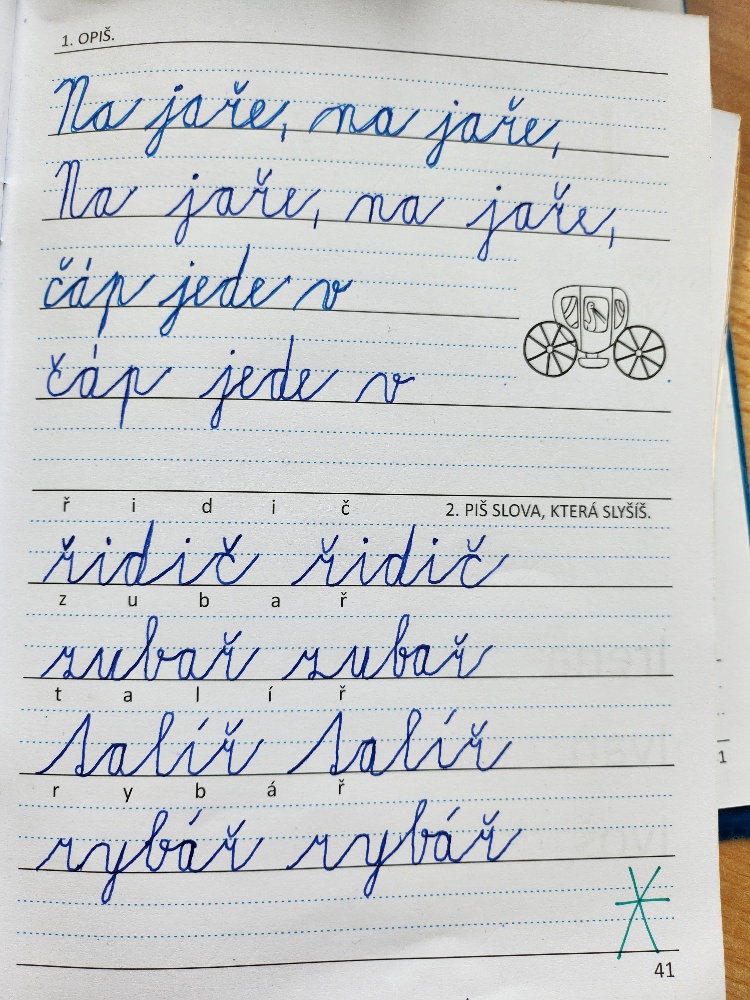 1. OPIŠ.
Na jaře, na jaře,
Na jaře, na jaře,
čáp jede v
čáp jede v
ř i d i č 2. PIŠ SLOVA, KTERÁ SLYŠÍŠ.
řidič řidič
z u b a ř
zubař zubař
t a l í ř
talíř talíř
r y b á ř
rybář rybář
41
1